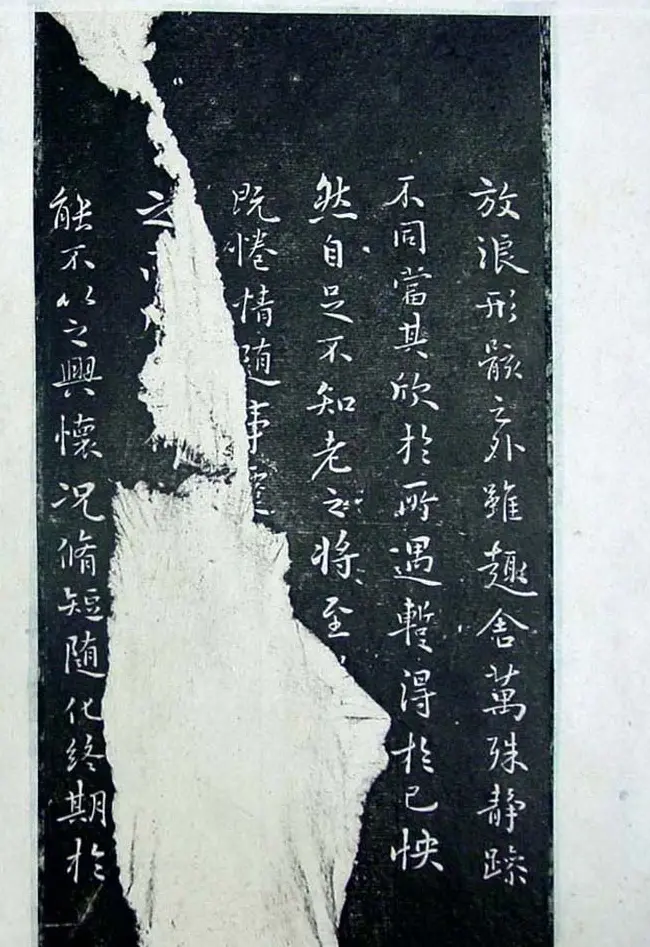 放浪形骸之外雖趣舍萬殊静躁
不同當其欣於所遇蹔得於己怏
然自足不知老之將至
既惓情随事遷
之
能不以之興懷况脩短随化終期於